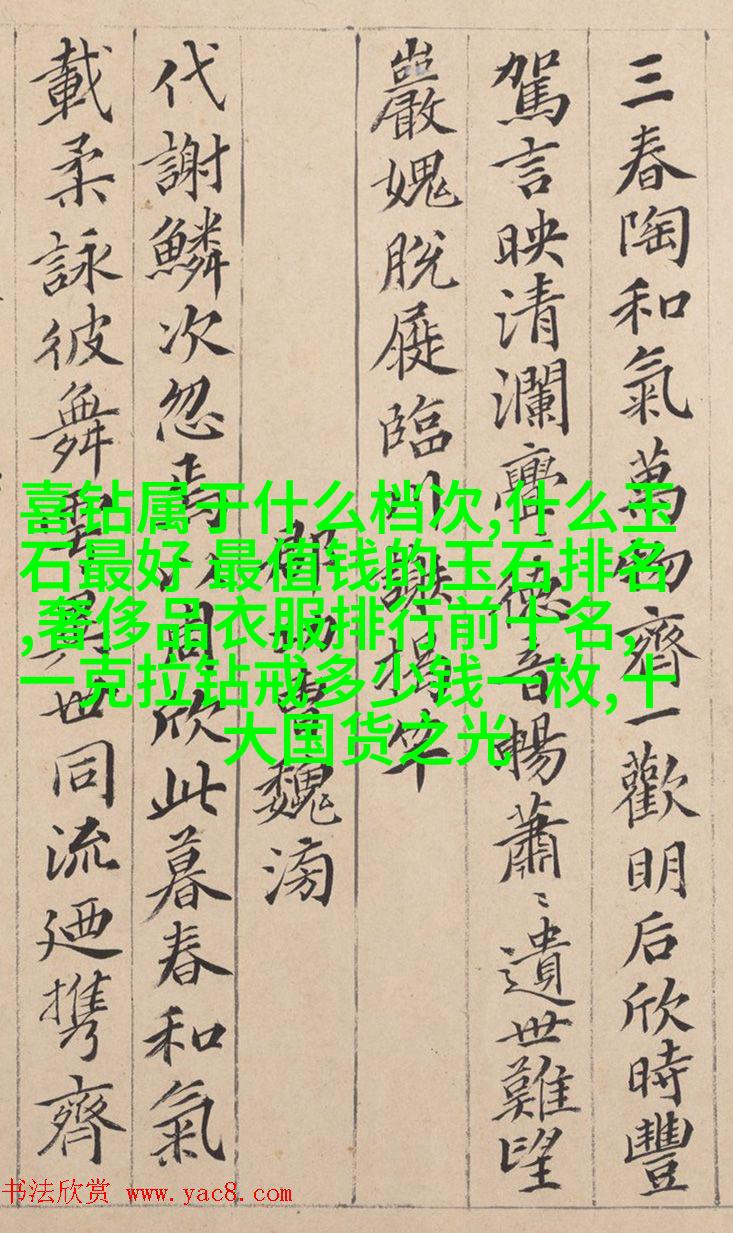 三春陶和氣萬物齊一歡明后欣時豐
駕言映清瀾亹〻德音暢蕭〻遺世難望
巖愧脫屣臨川謝揭竿
郡功曹魏滂
代謝鱗次忽焉以周欣此暮春和氣
載柔詠彼舞雩異世同流廼携齊
喜钻属于什么档次,什么玉
石最好 最值钱的玉石排名
,奢侈品衣服排行前十名,
一克拉钻戒多少钱一枚,十
大国货之光
书法欣赏 www.yac8.com